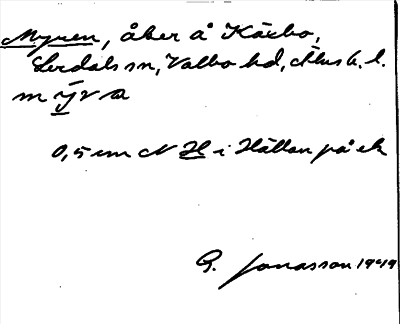 Myren, åker å Kärbo,
Lerdals sn, Valbo hd, Älvsb. l.
m ȳ r a
0,5 cm N H i Hällan på ek
G. Jonasson 1949